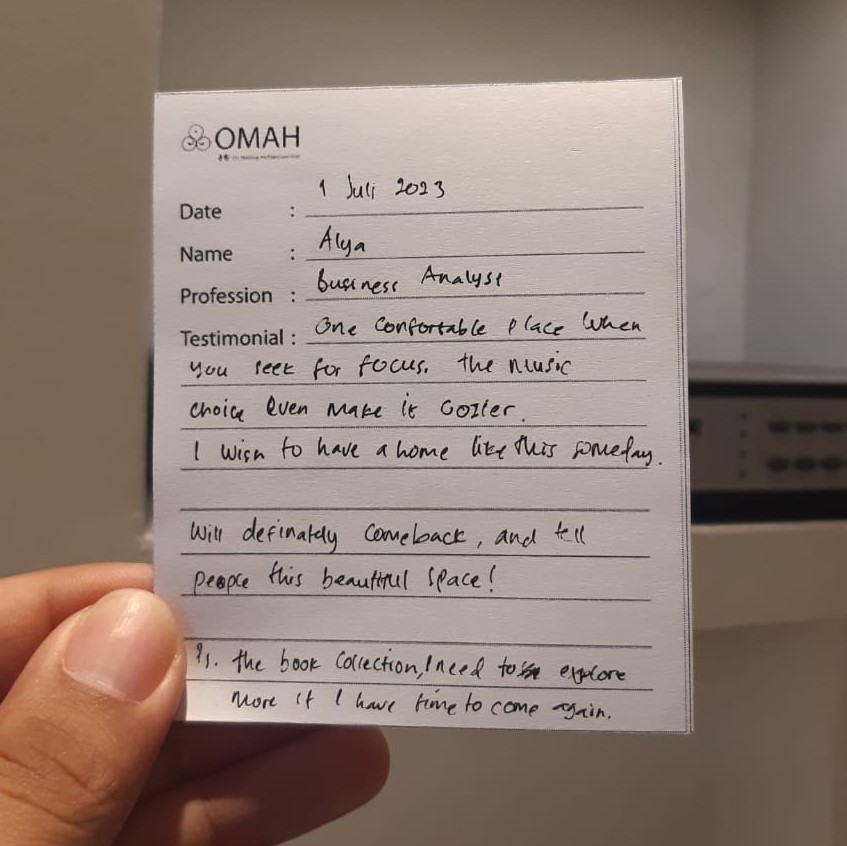 OMAH
Date : 1 Juli 2023
Name : Alya
Profession : Business Analyst
Testimonial : One Confortable place when
you seek for focus. the music
choice even make it cozier.
I wish to have a home like this someday.
Will definately comeback, and tell
people this beautiful space!
Ps. the book collection, I need to explore
more if I have time to come again.